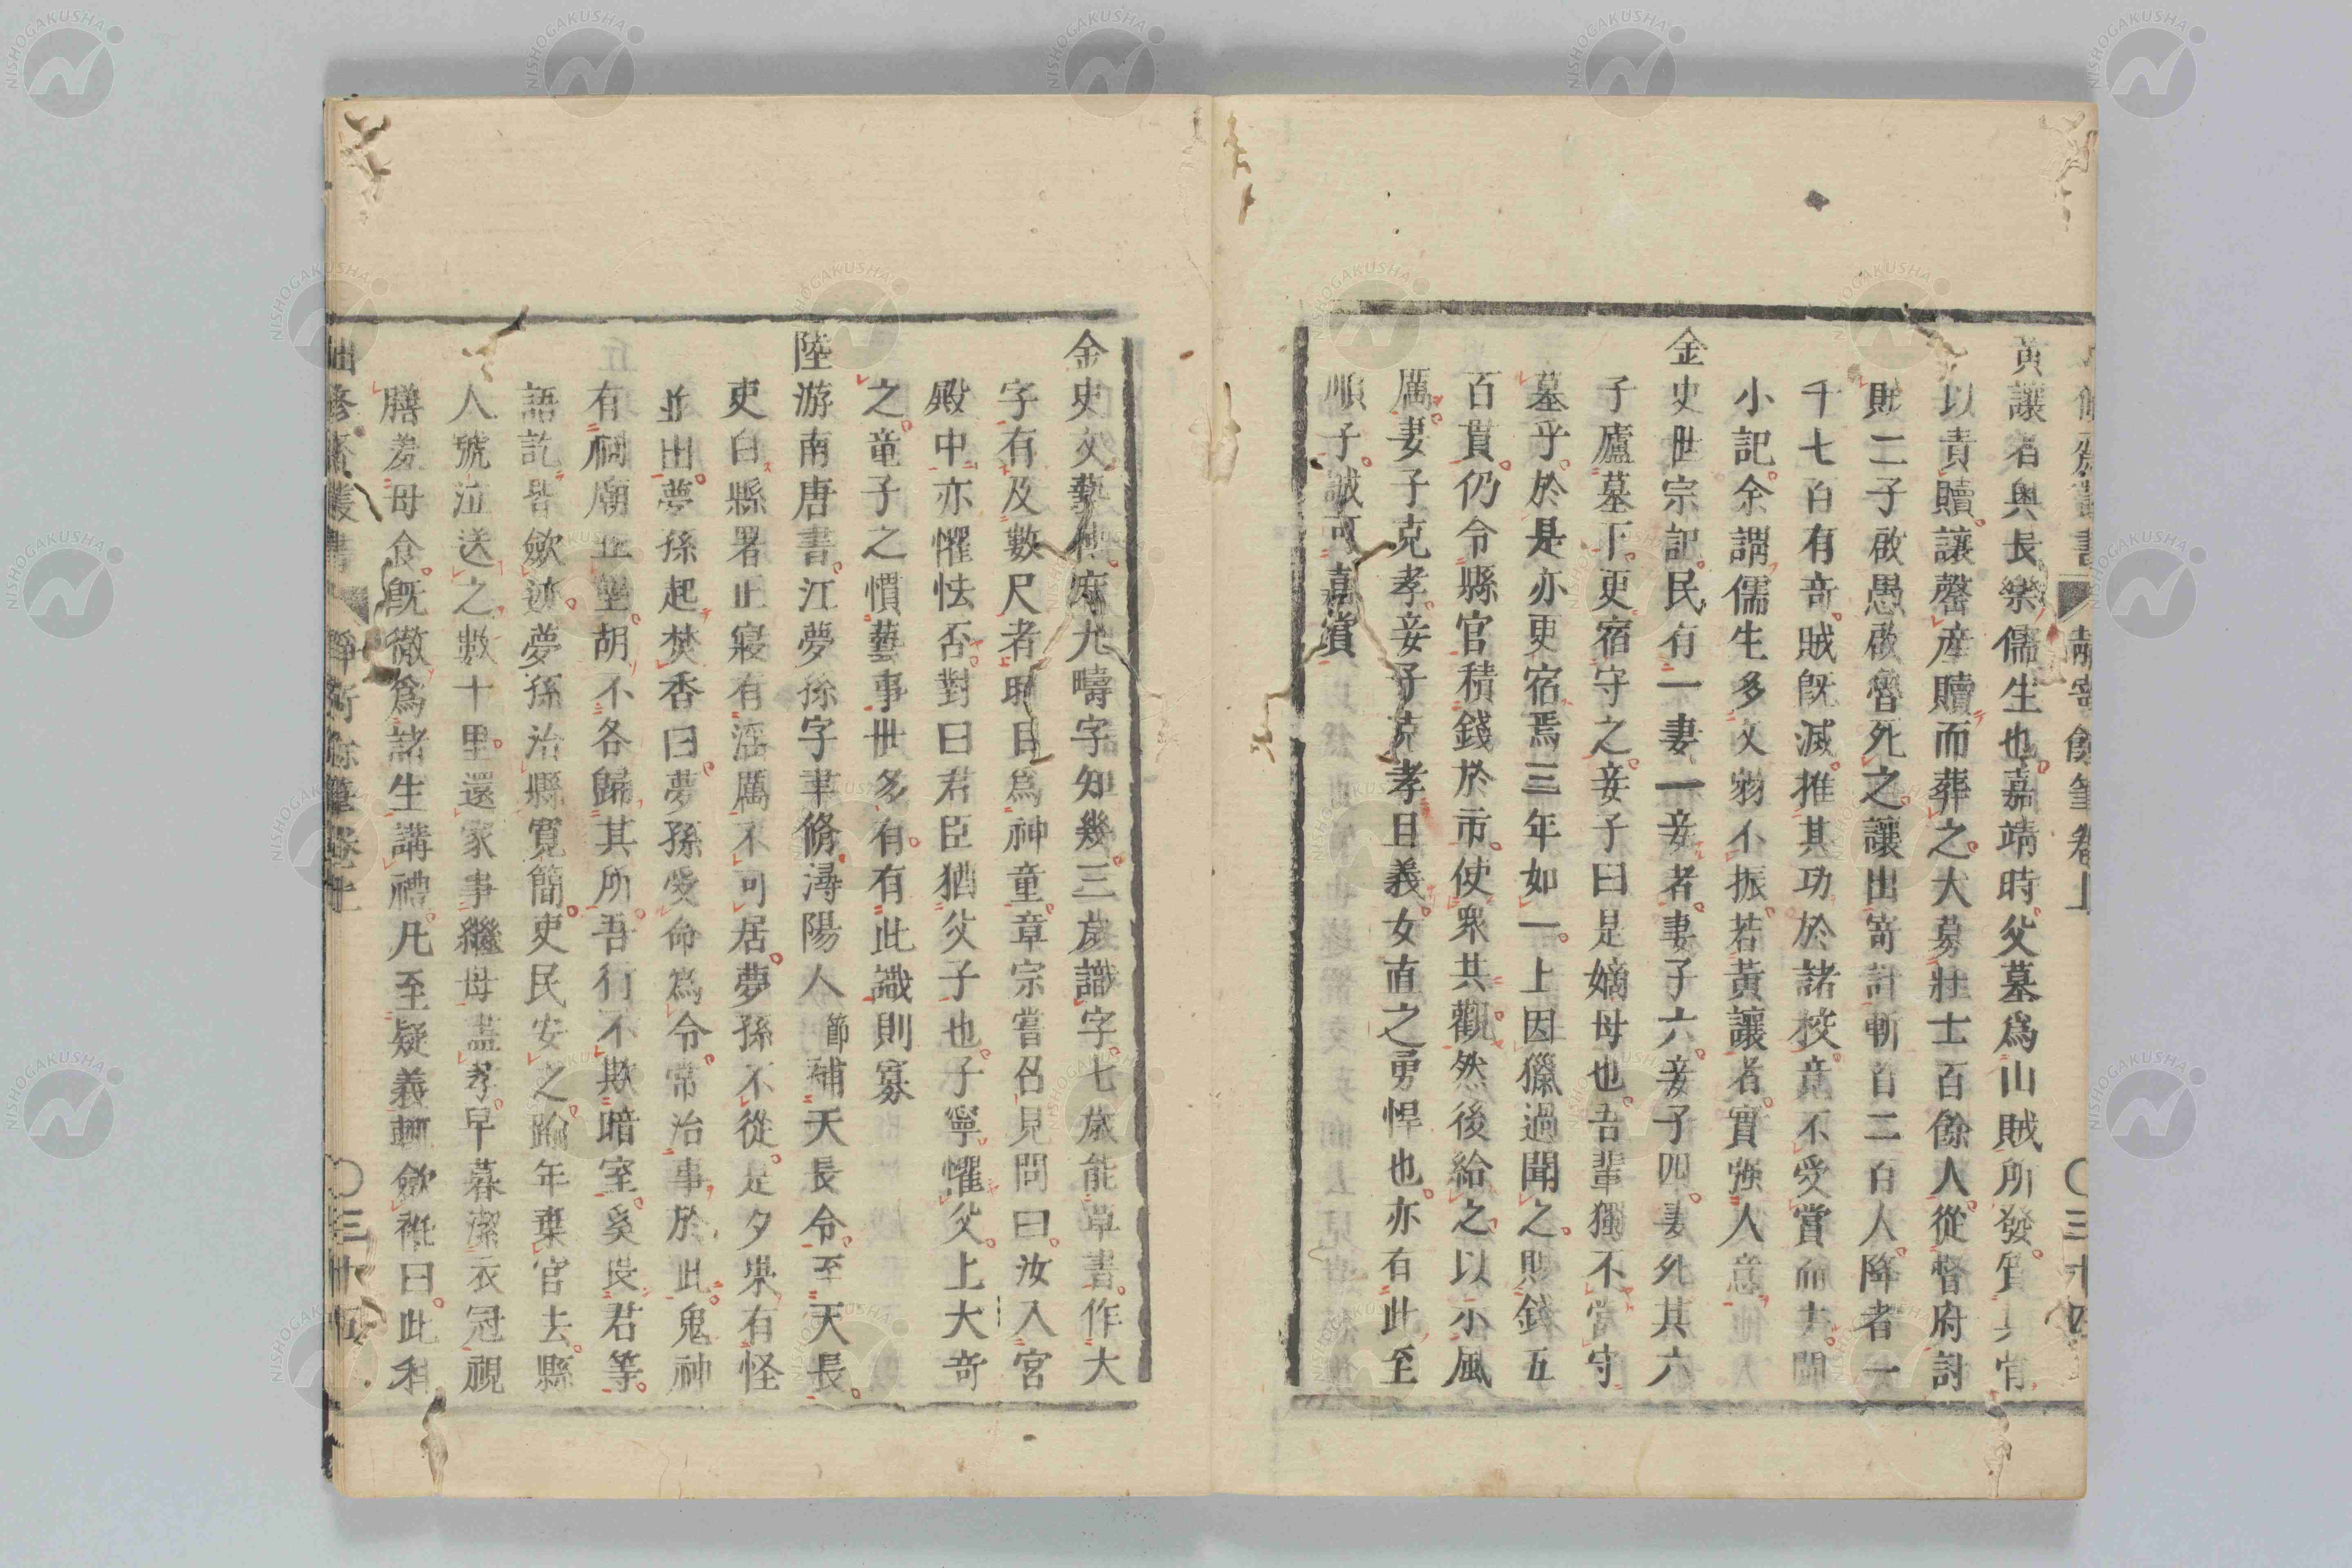 黃讓者與長樂儒生也嘉靖時父墓爲山賊所發質其宵
以責贖讓罄產贖而葬之大募壯士百餘人從督府討
賊二子啟愚啟魯死之讓出奇計斬首二百人降者一
千七百有奇賊旣滅推其功於諸校竟不受賞而去
小記余謂儒生多文弱不振若黃讓者實強人意
金史世宗記民有一妻一妾者妻子六妾子四妻死其六
子廬墓下更宿守之妾子曰是嫡母也吾輩獨不當守
墓乎於是亦更宿焉三年如一上因獵過聞之賜錢五
百貫仍令縣官積錢於市使衆共觀然後給之以示風
厲妻子克孝妾子克孝且義女直之勇悍也亦有此至
順子誠可嘉賞
金史文藝傳麻九疇字知幾三歲識字七歲能草書作大
字有及數尺者時目爲神童章宗嘗召見問曰汝入宮
殿中亦懼怯否對曰君臣猶父子也子寧懼父上大奇
之竜子之慣藝事世多有有此識則寡
陸游南唐書江夢孫字聿脩潯陽人節補天長令至天長
吏白縣署正寢有淫厲不可居夢孫不從是夕果有怪
並出夢孫起焚香曰夢孫受命爲令常治事於此鬼神
有祠廟丘壟胡不各歸其所吾行不欺暗室奚畏君等
語訖皆斂迹夢孫治縣寬簡吏民安之踰年棄官去縣
人號泣送之數十里還家事繼母盡孝早暮潔衣冠視
膳羞母食旣徹爲諸生講禮凡至疑義輒斂袵曰此科